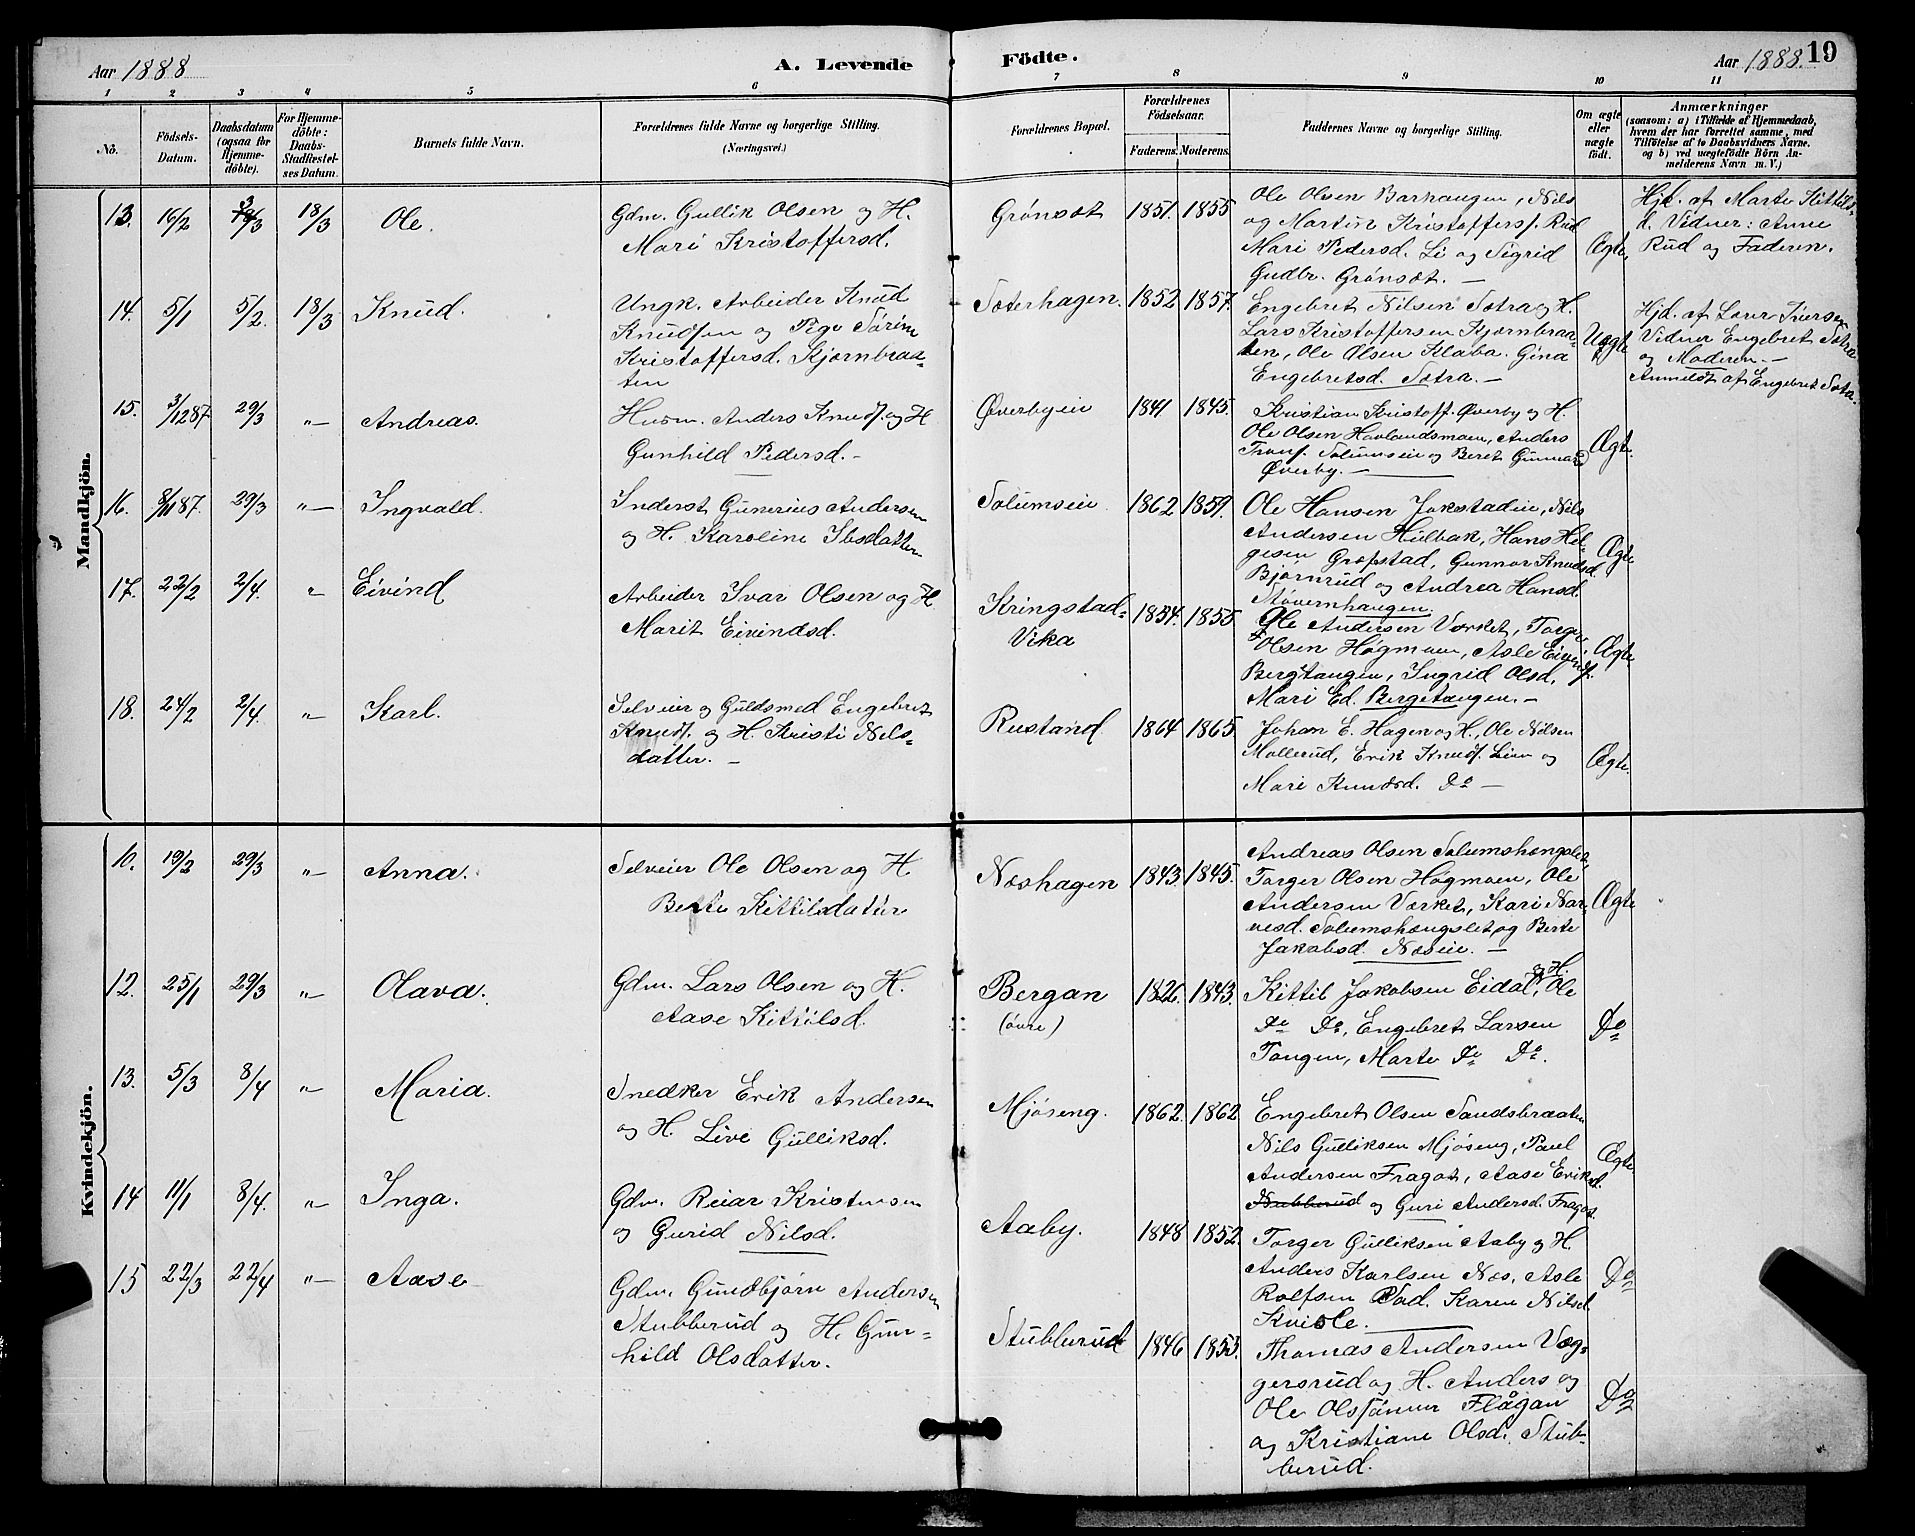 Aar 1888
A. Levende
Födte.
Aar 1888.
19
1 2 3 4 5 6 7 8 9 10 11
No.
Födsels-
Datum.
Daabsdatum
(ogsaa for
Hjemme-
döbte).
For Hjemme-
döbte:
Daabs-
Stadfæstel-
ses Datum.
Barnets fulde Navn.
Forældrenes fulde Navne og borgerlige Stilling.
(Næringsvei.)
Forældrenes Bopæl.
Forældrenes
Födselsaar.
Faderens. Moderens.
Faddernes Navne og borgerlige Stilling.
Om ægte
eller
uægte
födt.
Anmærkninger
(saasom: a) i Tilfælde af Hjemmedaab,
hvem der har forrettet samme, med
Tilföielse af to Daabsvidners Navne.
og b) ved uægtefödte Börn An-
melderens Navn m. V.)
Mandkjön.
13. 16/2 18/3 Ole.
Gdm. Gullik Olsen og H.
Mari Kristoffersd.
Grónsæt 1851. 1855
Ole Olsen Barhaugen, Nils
og Martin Kristoffers. Rud
Mari Pedersd. Li og Sigrid
Gudbr. Grónsæt. —
Ægte.
Hjd. af Marte Kittils-
d. Vidner: Anne
Rud og Faderen.
14. 5/1 5/2. 18/3 Knud.
Ungk. Arbeider Knud
Knudsen og Pige Sörine
Kristoffersd. Kjærnbraa-
ten
Sæterhagen. 1852 1857.
Engebret Nilsen Sætra og H.
Lars Kristoffersen Kjærnbraa-
ten, Ole Olsen Klaba. Gina
Engebretsd. Sætra. —
Uægte
Hjd. af Iversen
Vidner Engebret Sætra
og Moderen. —
Anmeldt af Engebret Sætra.
15. 3/12 87. 29/3 „ — Andreas.
Husm. Anders Knuds. og H
Gunhild Pedersd. —
Øverbyeie 1841 1845.
Kristian Kristoff. Øverby og H.
Ole Olsen Havlandsmoen, Anders
Solumseie og Berit Gunnars
Øverby. —
Ægte.
16. 8/11 87. 29/3 „ — Ingvald.
Inderst Gunerius Andersen
og H. Karoline Ibsdatter
Solumseie 1862 1859.
Ole Hansen Jokstadeie, Nils
Andersen Hulbak, Hans Hel-
gesen Grøfstad, Gunnar Knudsd.
Bjørnrud og Andrea Hansd.
Støvernhaugen.
Ægte
17. 22/2 2/4. „ Eivind
Arbeider Ivar Olsen og H.
Marit Eivindsd.
Kringstad-
Vika
1854. 1855.
Ole Andersen Værket, Torger
Olsen Høgmoen, Asle Eivinds.
Bergtangen, Ingrid Olsd.
Mari Ed. Bergetangen. —
Ægte
18. 24/2 2/4. „ Karl.
Selveier og Guldsmed Engebret
Knuds. og H. Kristi Nils-
datter. —
Rustand 1864 1865
Johan E. Hagen og H., Ole Nilsen
Mollerud, Erik Knuds. Lien og
Mari Knudsd. Do —
Ægte.
Kvindekjön.
10. 19/2 29/3 „ Anna.
Selveier Ole Olsen og H.
Berte Kittilsdatter
Næshagen 1843. 1845.
Andreas Olsen Solumshængslet,
Torger Olsen Høgmoen, Ole
Andersen Værket, Kari Nar-
vesd. Solumshængslet og Berte
Jakobsd. Næseie. —
Ægte
12. 25/1 29/3 „ Olava.
Gdm. Lars Olsen og H.
Aase Kittilsd.
Bergan
(øvre)
1826. 1843.
og H.
Kittil Jakobsen Eidal, Ole
Do Do, Engebret Larsen
Tangen, Marte Do Do.
Do
13. 5/3 8/4 „ Maria.
Snedker Erik Andersen
og H. Live Gulliksd.
Mjøseng. 1862. 1862
Engebret Olsen Sandsbraaten
Nils Gulliksen Mjøseng, Paul
Andersen Fragot, Aase Eriksd.
Stubberud og Guri Andersd. Fragot.
Ægte
14 11/1 8/4. „ — Inga.
Gdm. Reiar Kristensen
og Gurid Nilsd.
Aaby. 1848 1852.
Torger Gulliksen Aaby og H.
Anders Karlsen Næs, Asle
Rolfsen Rod. Karen Nilsd.
Kvisle.
Do
15 22/3 22/4 „ — Aase
Gdm. Gundbjørn Andersen
Stubberud og H. Gun-
hild Olsdatter.
Stubberud 1846 1853.
Thomas Andersen Væg-
gersrud og H. Anders og
Ole Flågan
og Kristiane Olsd. Stub-
berud.
Do